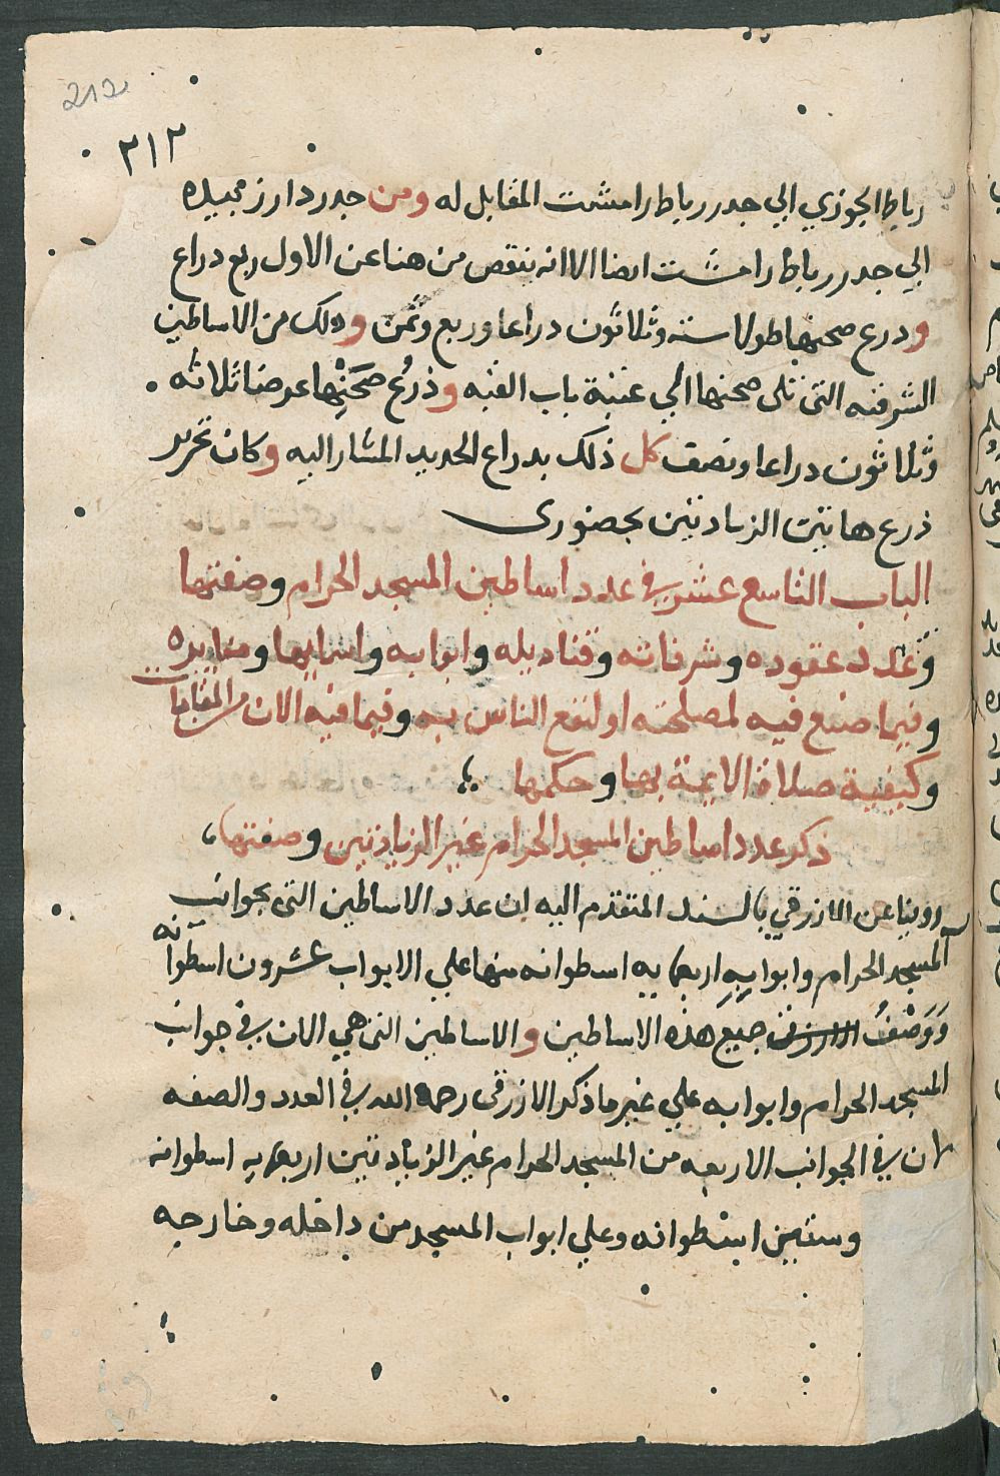 212
٢١٢
رباط الجوزي الي جدر رباط رامشت المقابل له ومن جدر دار زبيده
الي جدر رباط رامشت ايضا الا انه ينقص من هنا عن الاول ربع دراع
ودرع صحنها طولا ستة وثلاثون دراعا وربع وثمن وذلك من الاساطين
الشرقيه التى تلى صحنها الي عتبة باب القبه وذرع صحنها عرضا ثلاثه
وثلاثون دراعا ونصف كل ذلك بدراع الحديد المشار اليه وكان تحرير
ذرع هاتين الزيادتين بحضورى
الباب التاسع عشر في عدد اساطين المسجد الحرام وصفتها
وعدد عقوده وشرفاته وقناديله وابوابه واسمايها ومنايره
وفيما صنع فيه لمصلحته او لنفع الناس به وفيما فيه الان من المقامات
وكيفية صلاة الايمة بها وحكمها
ذكر عدد اساطين المسجد الحرام غير الزيادتين وصفتها
روينا عن الازرقي بالسند المتقدم اليه ان عدد الاساطين التى بجوانب
المسجد الحرام وابوابه اربعمايه اسطوانه منها علي الابواب عشرون اسطوانه
ووصف جميع هذه الاساطين والاساطين التى هي الان في جوانب
المسجد الحرام وابوابه علي غير ما ذكر الازرقى رحمه الله في العدد والصفه
لان في الجوانب الاربعه من المسجد الحرام غير الزيادتين اربعمايه اسطوانه
وستين اسطوانه وعلي ابواب المسجد من داخله وخارجه